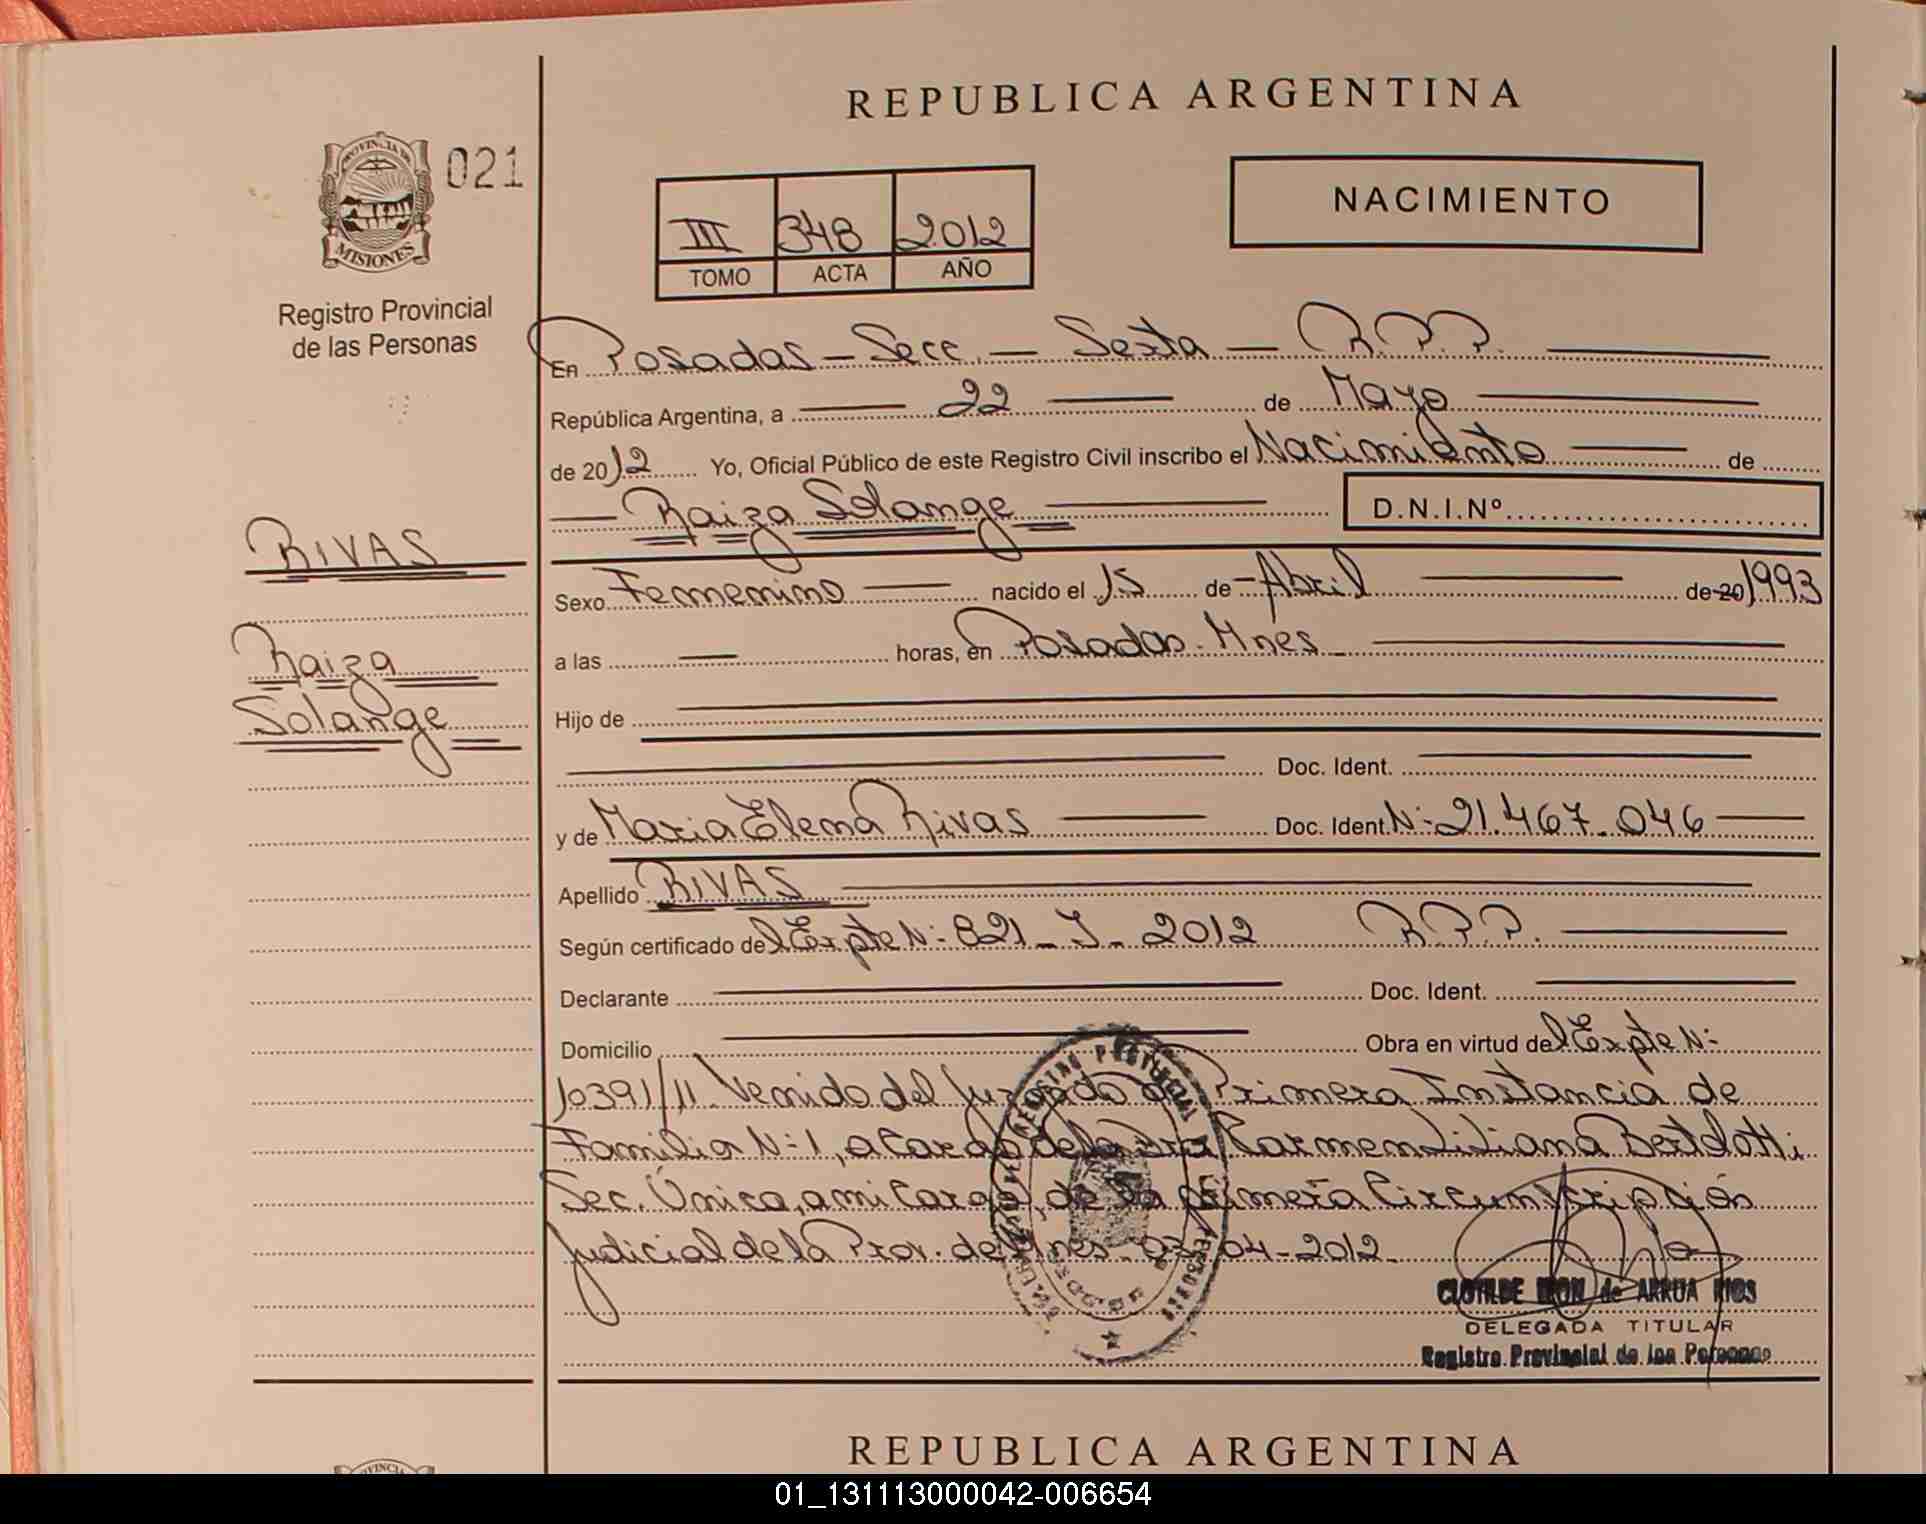 REPUBLICA ARGENTINA
PROVINCIA DE
MISIONES
021
Registro Provincial
de las Personas
III 348 2012
TOMO ACTA AÑO
NACIMIENTO
En Posadas - Secc. - Sexta - R.P.P.
República Argentina, a 22 de Mayo
de 2012 Yo, Oficial Público de este Registro Civil inscribo el Nacimiento de
Raiza Solange D.N.I.Nº
RIVAS
Sexo Femenino nacido el 15 de Abril de 20 1993
Raiza
a las — horas, en Posadas - Mnes
Solange
Hijo de
Doc. Ident.
y de Maria Elena Rivas Doc. Ident N: 21.467.046
Apellido RIVAS
Según certificado del Expte N: 821 - J - 2012 R.P.P.
Declarante Doc. Ident.
Domicilio Obra en virtud del Expte N:
10391/11. Venido del Juzgado de Primera Instancia de
Familia N:1, a cargo de la Dra Carmen Liliana Bertolotti
Sec. Única, a mi cargo, de la primera Circunscripción
Judicial de la Prov. de Mnes - 04 - 2012
CLOTILDE de ARRUA RIOS
DELEGADA TITULAR
Registro Provincial de las Personas
REPUBLICA ARGENTINA
PROVINCIA
01_131113000042-006654